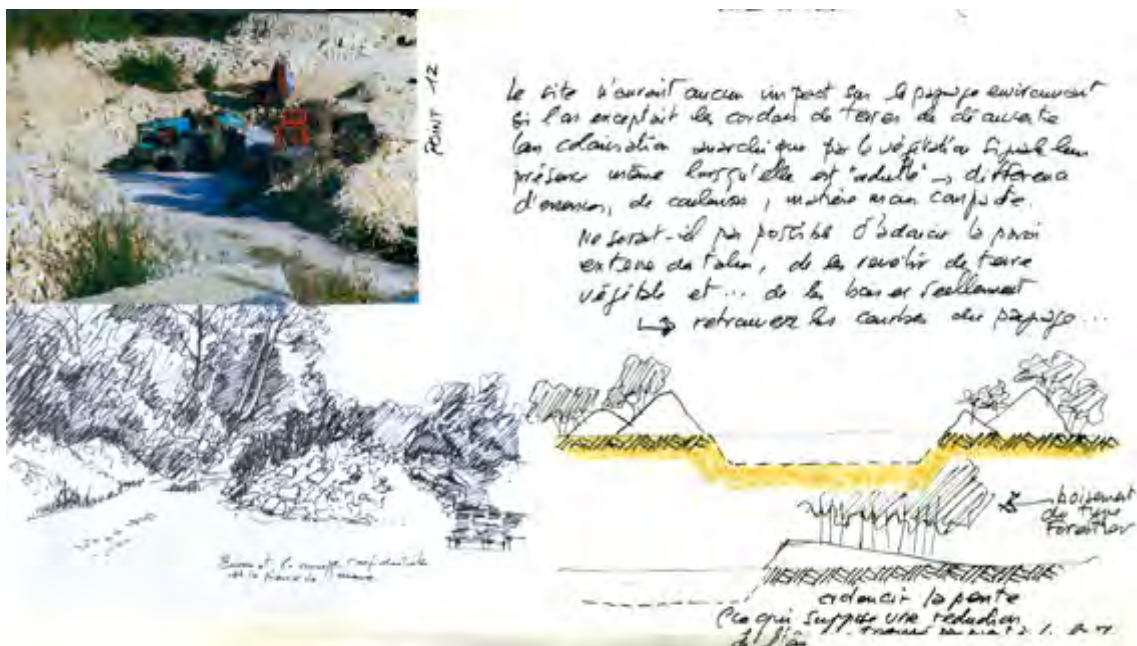 POINT 12
Le site n'aurait aucun impact sur le paysage environnant
si l'on exceptait les cordons de terres de découverte
leur colonisation anarchique par la végétation signale leur
présence même lorsqu'elle est "adulte" → différence
d'essences, de couleurs, matière moins compacte.
Ne serait-il pas possible d'adoucir la paroi
externe du talus, de les revêtir de terre
végétale et... de les boiser réellement
↳ retrouver les courbes du paysage...
boisement
de type
forestier
adoucir la pente
(ce qui suppose une réduction